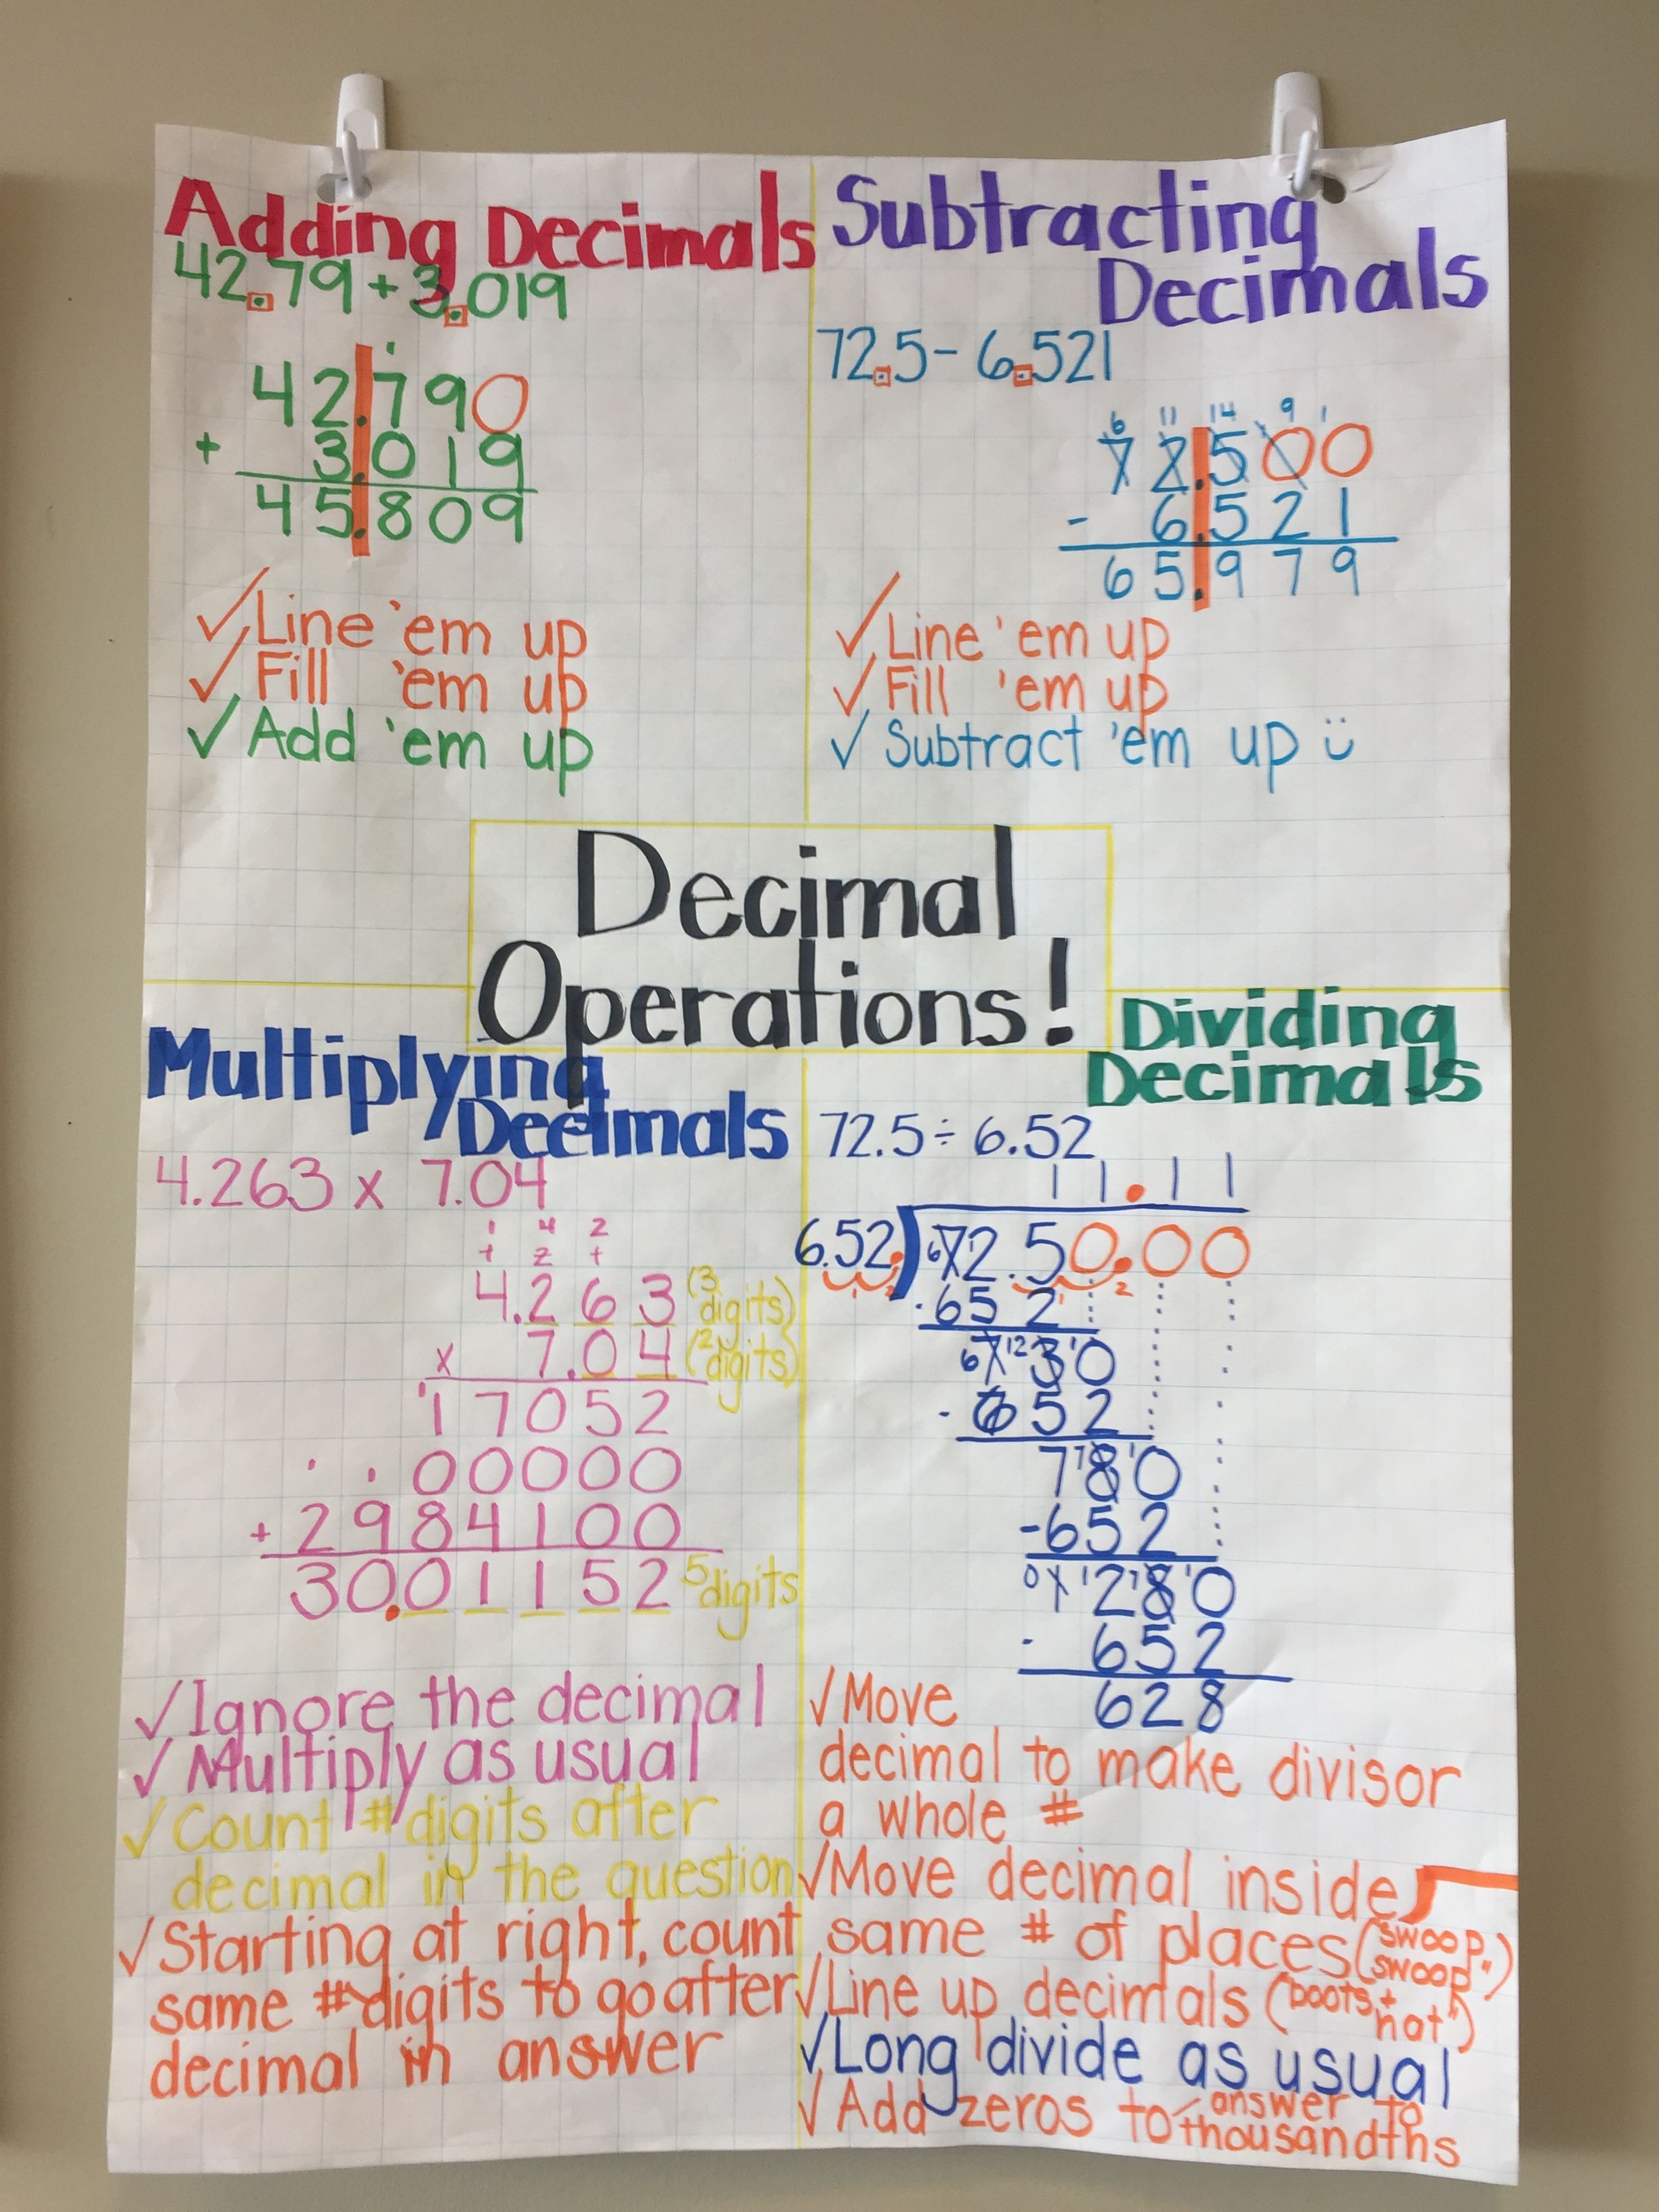 Adding Decimals
42.79 + 3.019
42.790
+ 3.019
45.809
✓Line 'em up
✓Fill 'em up
✓Add 'em up
Subtracting
Decimals
72.5 - 6.521
6 11 14 9 1
72.500
- 6.521
65.979
✓Line 'em up
✓Fill 'em up
✓Subtract 'em up ü
Decimal
Operations!
Multiplying
Decimals
4.263 x 7.04
1 4 2
+ 2 +
4.263 (3 digits)
x 7.04 (2 digits)
17052
00000
+ 2984100
30.01152 5 digits
✓Ignore the decimal
✓Multiply as usual
✓Count # digits after
decimal in the question
✓Starting at right, count
same # digits to go after
decimal in answer
Dividing
Decimals
72.5 ÷ 6.52
11.11
6.52.)72.50.00
- 652
730
- 652
780
- 652
1280
- 652
628
✓Move
decimal to make divisor
a whole #
✓Move decimal inside
same # of places (swoop, swoop")
✓Line up decimals (boots + hat")
✓Long divide as usual
✓Add zeros to answer to
thousandths